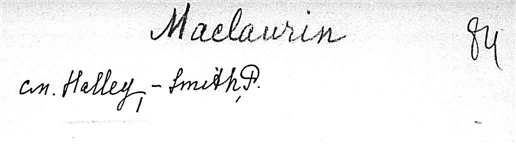 Maclaurin 84
см. Halley, - Smith, P.